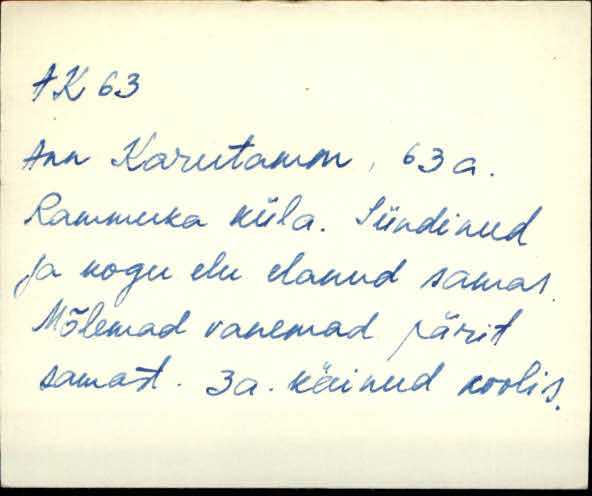 AK 63
Ann Karutamm, 63 a.
Rammuka küla. Sündinud
ja kogu elu elanud samas.
Mõlemad vanemad pärit
samast. 3 a. käinud koolis.